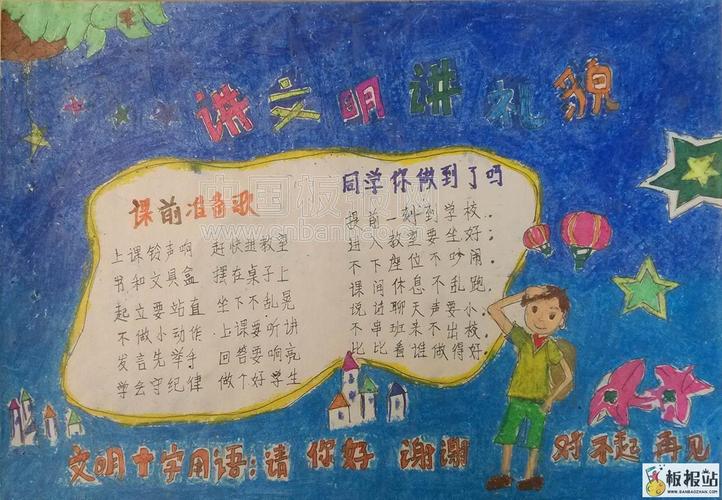 讲文明讲礼貌
课前准备歌
上课铃声响 赶快进教室
书和文具盒 摆在桌子上
起立要站直 坐下不乱晃
不做小动作 上课要听讲
发言先举手 回答要响亮
学会守纪律 做个好学生
同学你做到了吗
提前一刻到学校.
进入教室要坐好;
不下座位不吵闹.
课间休息不乱跑.
说话聊天声要小.
不串班来不出校.
比比看谁做得好.
文明十字用语:请 你好 谢谢 对不起 再见
板报站
WWW.BANBAOZHAN.COM